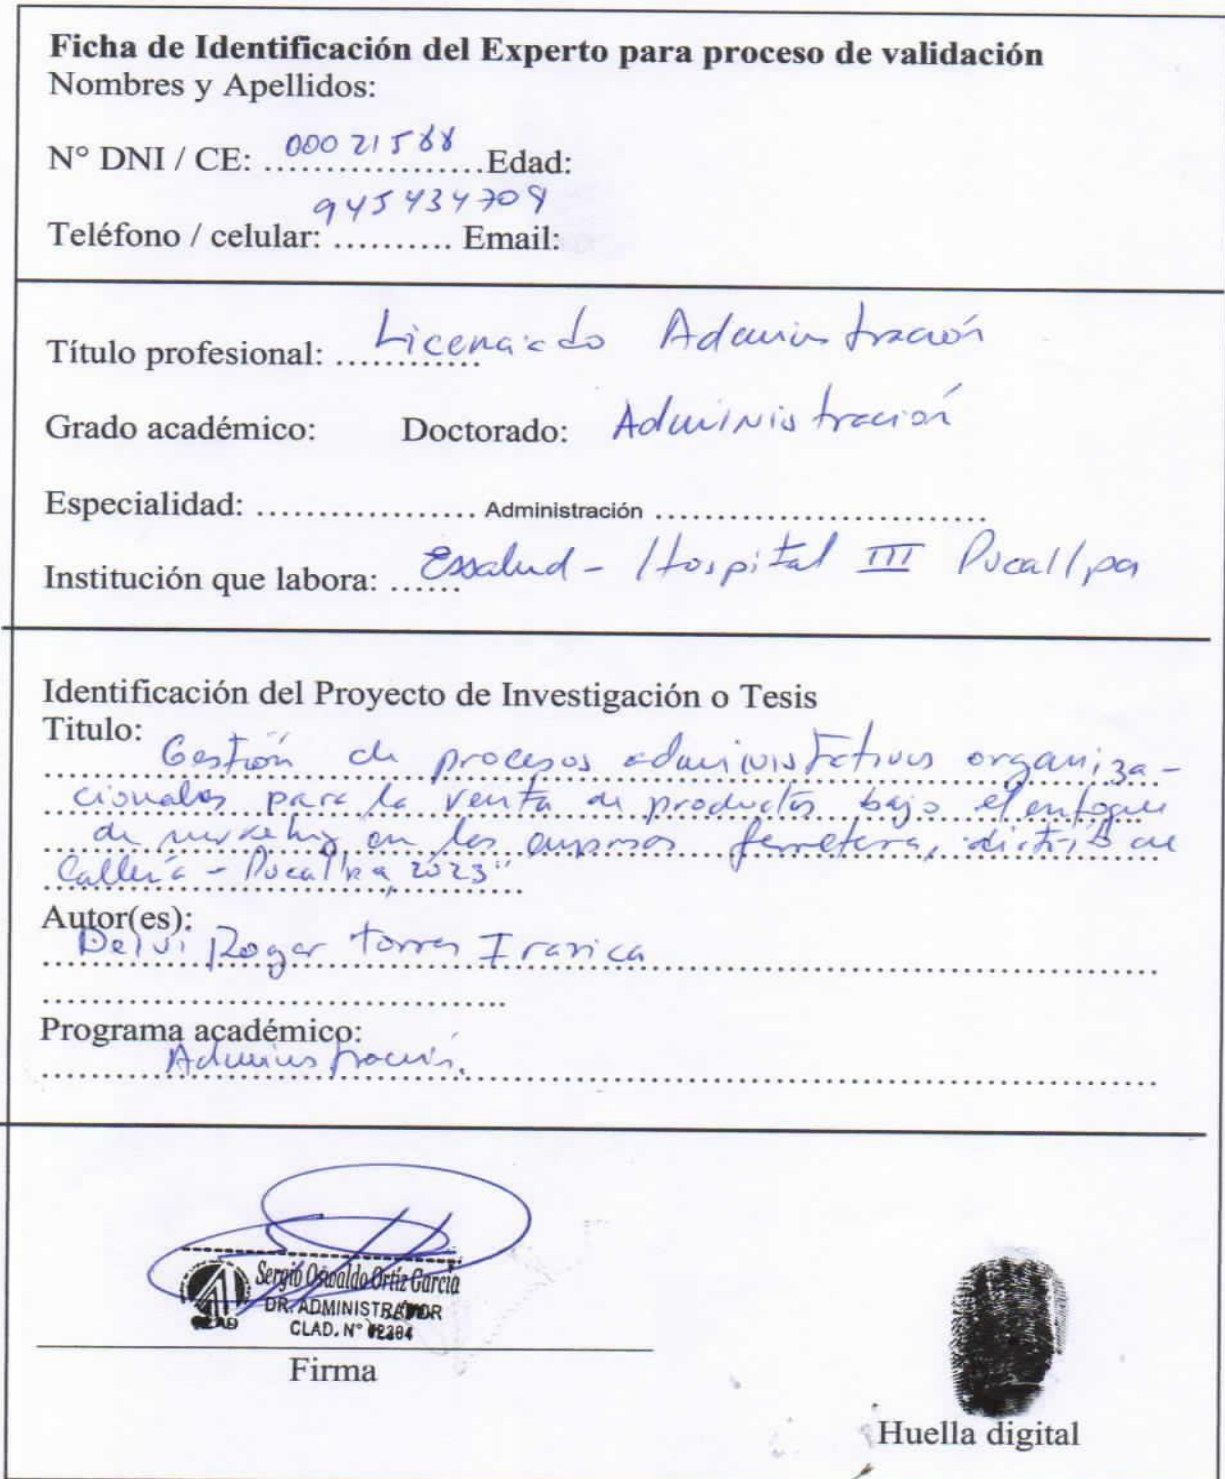 Ficha de Identificación del Experto para proceso de validación
Nombres y Apellidos:
N° DNI / CE: 00021588 Edad:
Teléfono / celular: 945434709 Email:
Título profesional: Licenciado Administración
Grado académico: Doctorado: Administración
Especialidad: Administración
Institución que labora: Essalud - Hospital III Pucallpa
Identificación del Proyecto de Investigación o Tesis
Titulo:
Gestión de procesos administrativos organiza-
cionales para la venta de productos bajo el enfoque
de marketing en las empresas ferretera, distrito de
Callería - Pucallpa, 2023"
Autor(es):
Delvi Roger Torres
Programa académico:
Administración.
Sergio Oswaldo Ortiz Garcia
DR. ADMINISTRADOR
CLAD. N°
Firma
Huella digital